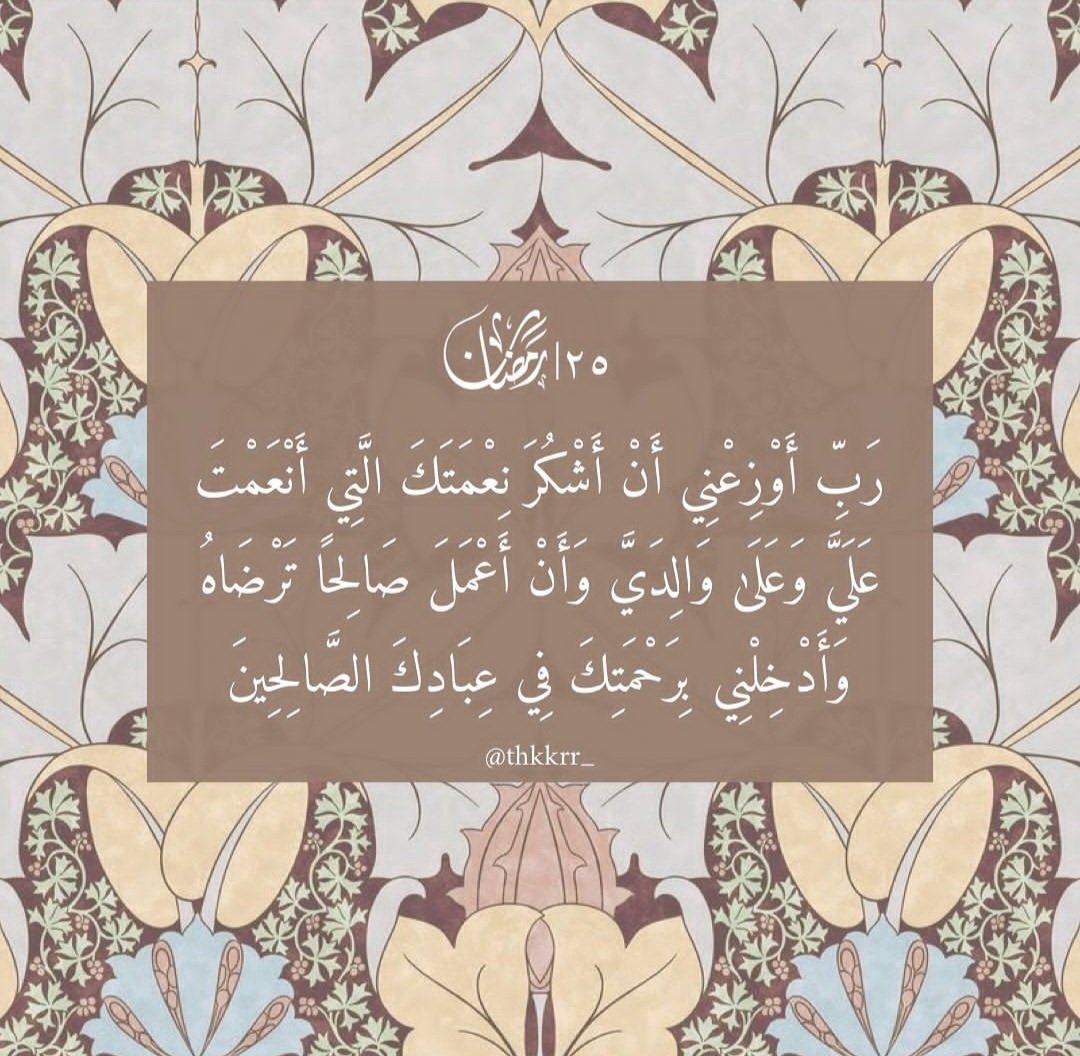 ٢٥ | رمضان
رَبِّ أَوْزِعْنِي أَنْ أَشْكُرَ نِعْمَتَكَ الَّتِي أَنْعَمْتَ
عَلَيَّ وَعَلَىٰ وَالِدَيَّ وَأَنْ أَعْمَلَ صَالِحًا تَرْضَاهُ
وَأَدْخِلْنِي بِرَحْمَتِكَ فِي عِبَادِكَ الصَّالِحِينَ
@thkkrr_